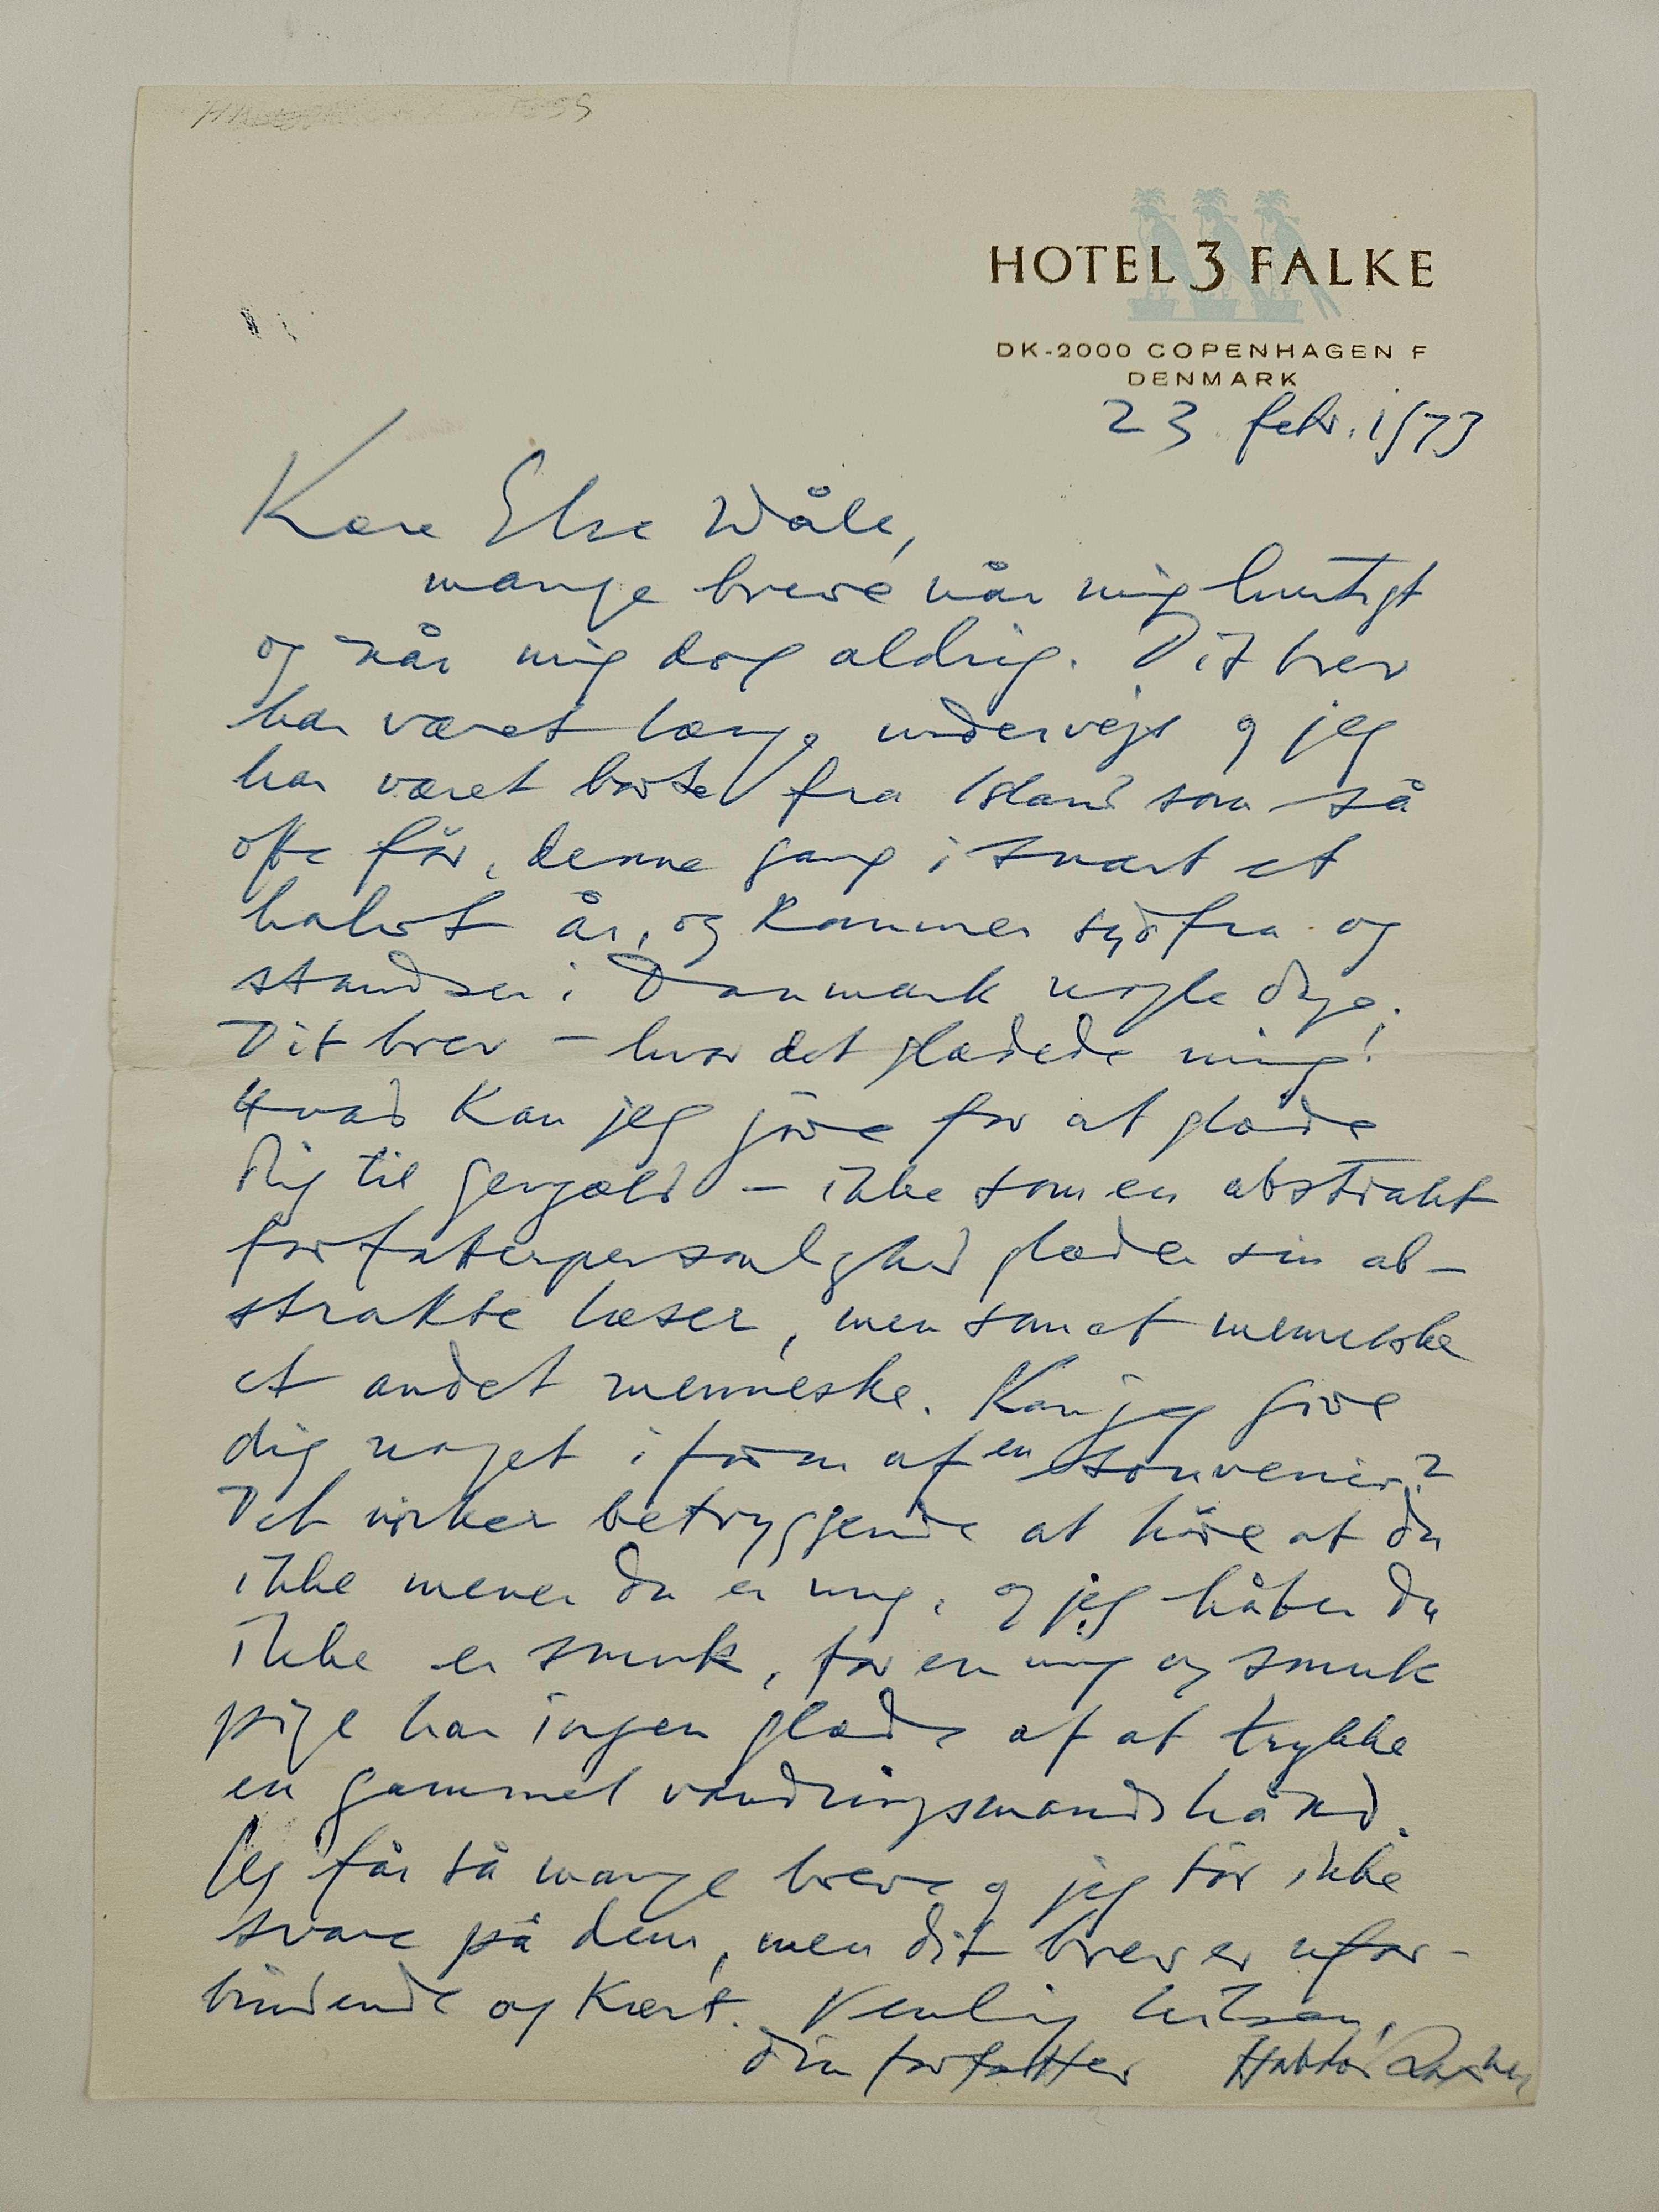 HOTEL 3 FALKE
DK-2000 COPENHAGEN F
DENMARK
23 febr. 1973
Kære Else Wåle,
mange breve når mig hurtigt
og når mig dog aldrig. Dit brev
har været længe undervejs og jeg
har været borte fra Island som så
ofte för, denne gang i snart et
halvt år, og kommer sydfra og
standser i Danmark nogle dage.
Dit brev – hvor det glædede mig!
Hvad kan jeg jöre for at glæde
dig til gengæld – ikke som en abstrakt
forfatterpersonlighed glæder sin ab-
strakte læser, men som et menneske
et andet menneske. Kan jeg give
dig noget i form af en souvenir?
Det virker betryggende at höre at du
ikke mener du er ung, og jeg håber du
ikke er smuk, for en ung og smuk
pige har ingen glæde af at trykke
en gammel vandringsmands hånd.
Jeg får så mange breve og jeg tör ikke
svare på dem, men dit brev er ufor-
bindende og kært. Venlig hilsen,
din forfatter Halldór Laxness